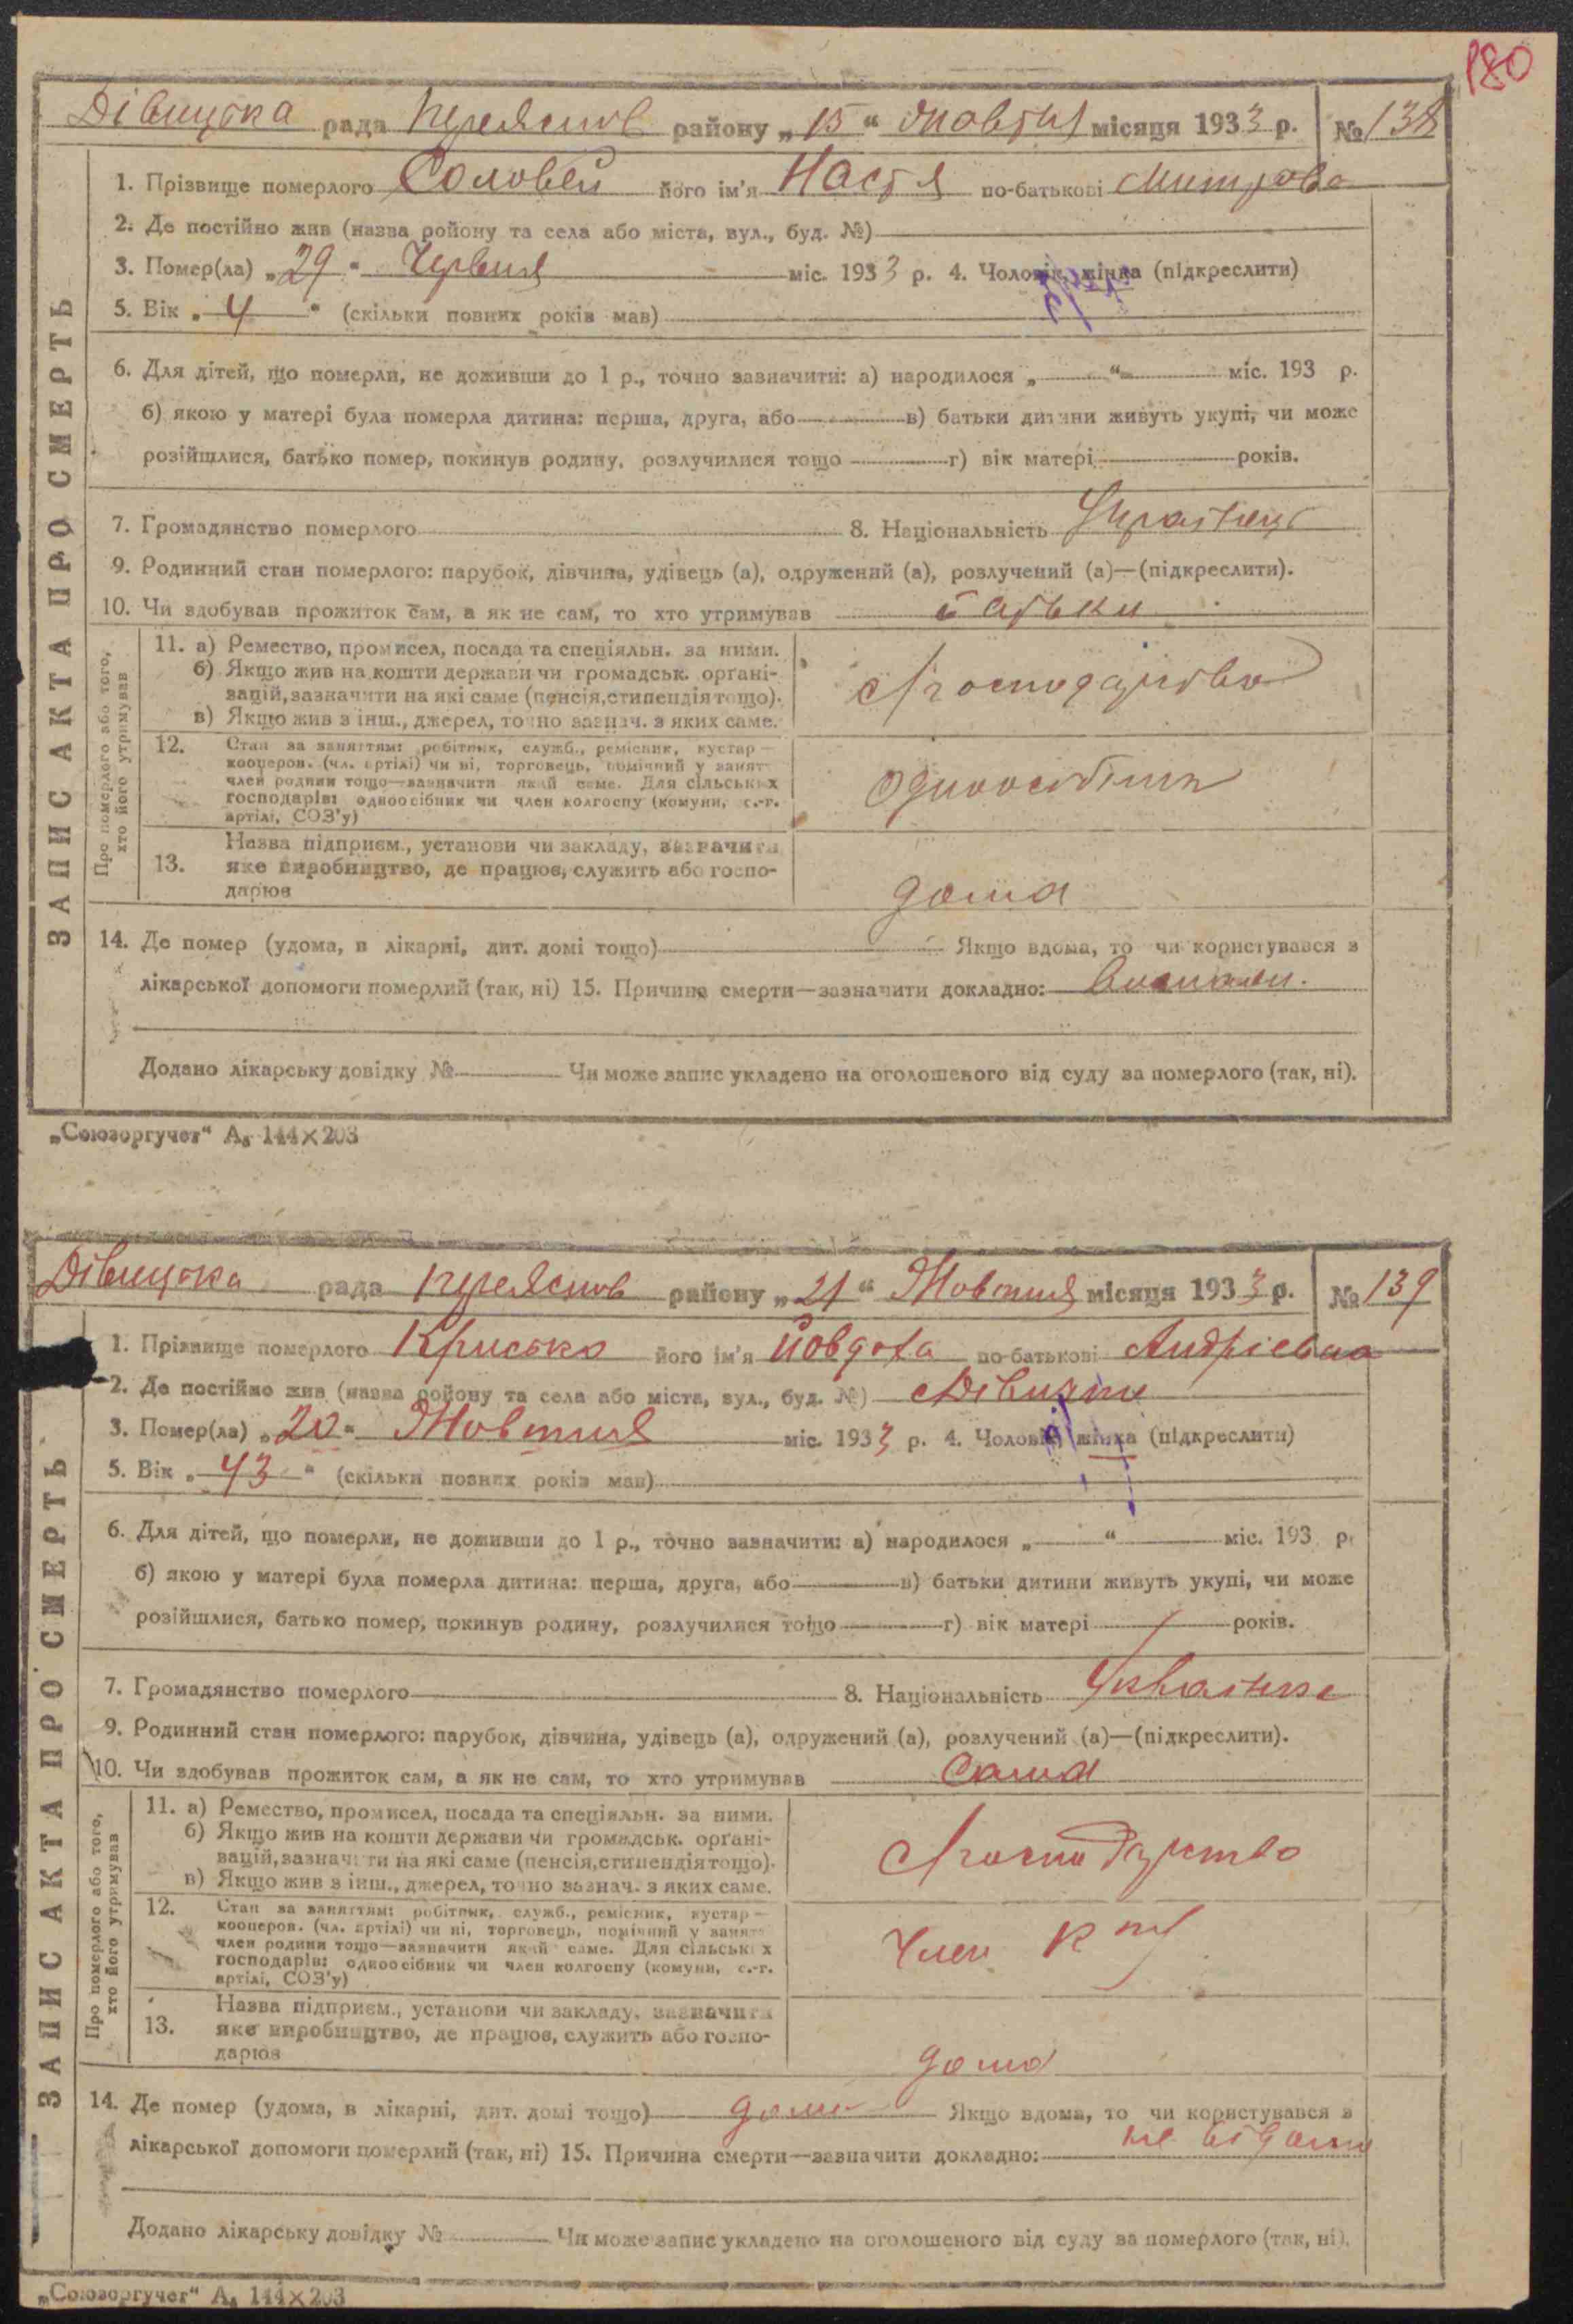 180
Дівицька рада Переяслов району „15“ Жовтня місяця 1933 р. № 138
ЗАПИС АКТА ПРО СМЕРТЬ
1. Прізвище померлого Соловей його ім'я Настя по-батькові Митрова
2. Де постійно жив (назва ройону та села або міста, вул., буд. №)
3. Помер(ла) „29“ Червня міс. 1933 р. 4. Чоловік, жінка (підкреслити)
5. Вік „4“ (скільки повних років мав)
6. Для дітей, що померли, не доживши до 1 р., точно зазначити: а) народилося „ “ міс. 193 р.
б) якою у матері була померла дитина: перша, друга, або в) батьки дитини живуть укупі, чи може
розійшлися, батько помер, покинув родину, розлучилися тощо г) вік матері років.
7. Громадянство померлого 8. Національність
9. Родинний стан померлого: парубок, дівчина, удівець (а), одружений (а), розлучений (а)—(підкреслити).
10. Чи здобував прожиток сам, а як не сам, то хто утримував батьки
Про померлого або того, хто його утримував
11. а) Ремество, промисел, посада та спеціяльн. за ними.
б) Якщо жив на кошти держави чи громадськ. орґані-
зацій, зазначити на які саме (пенсія, стипендія тощо).
в) Якщо жив з інш., джерел, точно зазнач. з яких саме.
12. Стан за заняттям: робітник, служб., ремісник, кустар—
кооперов. (чл. артілі) чи ні, торговець, помічний у занят.
член родини тощо—зазначити який саме. Для сільських
господарів: одноосібник чи член колгоспу (комуни, с.-г.
артілі, СОЗ'у)
одноосібник
13. Назва підприєм., установи чи закладу, зазначити
яке виробництво, де працює, служить або госпо-
дарює
дома
14. Де помер (удома, в лікарні, дит. домі тощо) Якщо вдома, то чи користувався з
лікарської допомоги померлий (так, ні) 15. Причина смерти—зазначити докладно:
Додано лікарську довідку № Чи може запис укладено на оголошеного від суду за померлого (так, ні).
„Союзоргучет“ А₅ 144×203
Дівицька рада Переяслов району „21“ Жовтня місяця 1933 р. № 139
ЗАПИС АКТА ПРО СМЕРТЬ
1. Прізвище померлого Крисько його ім'я Йовдоха по-батькові Андрієвна
2. Де постійно жив (назва ройону та села або міста, вул., буд. №) Дівички
3. Помер(ла) „20“ Жовтня міс. 1933 р. 4. Чоловік, жінка (підкреслити)
5. Вік „43“ (скільки повних років мав)
6. Для дітей, що померли, не доживши до 1 р., точно зазначити: а) народилося „ “ міс. 193 р.
б) якою у матері була померла дитина: перша, друга, або в) батьки дитини живуть укупі, чи може
розійшлися, батько помер, покинув родину, розлучилися тощо г) вік матері років.
7. Громадянство померлого 8. Національність
9. Родинний стан померлого: парубок, дівчина, удівець (а), одружений (а), розлучений (а)—(підкреслити).
10. Чи здобував прожиток сам, а як не сам, то хто утримував Сама
Про померлого або того, хто його утримував
11. а) Ремество, промисел, посада та спеціяльн. за ними.
б) Якщо жив на кошти держави чи громадськ. орґані-
зацій, зазначити на які саме (пенсія, стипендія тощо).
в) Якщо жив з інш., джерел, точно зазнач. з яких саме.
12. Стан за заняттям: робітник, служб., ремісник, кустар—
кооперов. (чл. артілі) чи ні, торговець, помічний у занят.
член родини тощо—зазначити який саме. Для сільських
господарів: одноосібник чи член колгоспу (комуни, с.-г.
артілі, СОЗ'у)
Член
13. Назва підприєм., установи чи закладу, зазначити
яке виробництво, де працює, служить або госпо-
дарює
дома
14. Де помер (удома, в лікарні, дит. домі тощо) дома Якщо вдома, то чи користувався з
лікарської допомоги померлий (так, ні) 15. Причина смерти—зазначити докладно: не відомо
Додано лікарську довідку № Чи може запис укладено на оголошеного від суду за померлого (так, ні).
„Союзоргучет“ А₅ 144×203